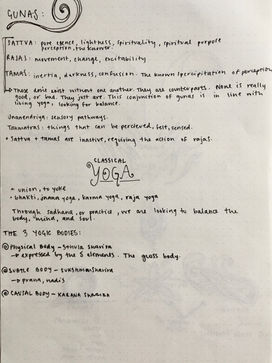 GUNAS:
SATTVA: pure essence, lightness, spirituality, spiritual purpose
perception, the knower.
RAJAS: movement, change, excitability
TAMAS: inertia, darkness, confusion. The known (percipitation of perception
These dont exist without one another. They are counterparts. None is really
good, or bad. They just are. This conjunction of gunas is in line with
living yoga, looking for balance.
Jnanendriya: sensory pathways.
Tanmatras: things that can be percieved, felt, sensed.
• Sattva + tamas are inactive, requiring the action of rajas.
CLASSICAL
YOGA
- union, to yoke
- bhakti, jnana yoga, karma yoga, raja yoga
Through sadhana, or practice, we are looking to balance the
body, mind, and soul.
THE 3 YOGIC BODIES:
① Physical Body - sthula sharira
→ expressed by the 5 elements. The gross body.
② SUBTLE BODY - sukshma sharira
→ prana, nadis
③ CAUSAL BODY - KARANA SHARIRA